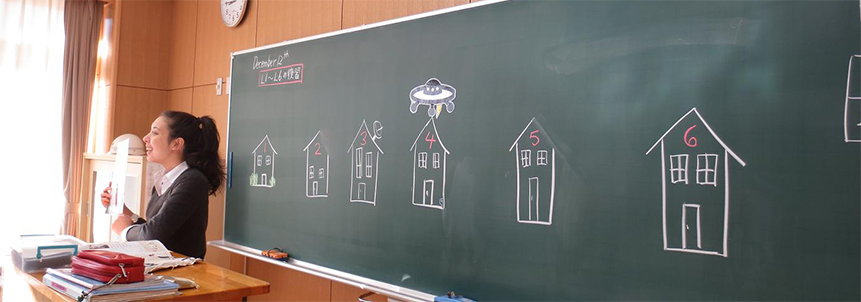 December 12th
L1~L6の復習
1
2
3
4
5
6